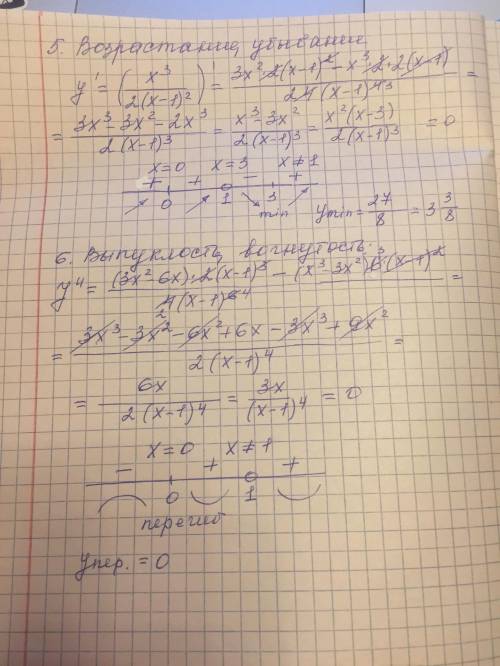 5. Возрастание, убывание
y' = (x³ / 2(x-1)²)' = (3x²·2(x-1)² - x³·2·2(x-1)) / (24(x-1)⁴³) =
= (3x³ - 3x² - 2x³) / (2(x-1)³) = (x³ - 3x²) / (2(x-1)³) = x²(x-3) / (2(x-1)³) = 0
x=0 x=3 x≠1
+ + - +
0 1 3
min
ymin = 27/8 = 3 3/8
6. Выпуклость, вогнутость.
y'' = ((3x² - 6x)·2(x-1)³ - (x³ - 3x²)6³(x-1)²) / (4(x-1)⁶⁴) =
2
= (3x³ - 3x² - 6x² + 6x - 3x³ + 9x²) / (2(x-1)⁴) =
= 6x / (2(x-1)⁴) = 3x / (x-1)⁴ = 0
x=0 x≠1
- + +
0 1
перегиб
yпер. = 0